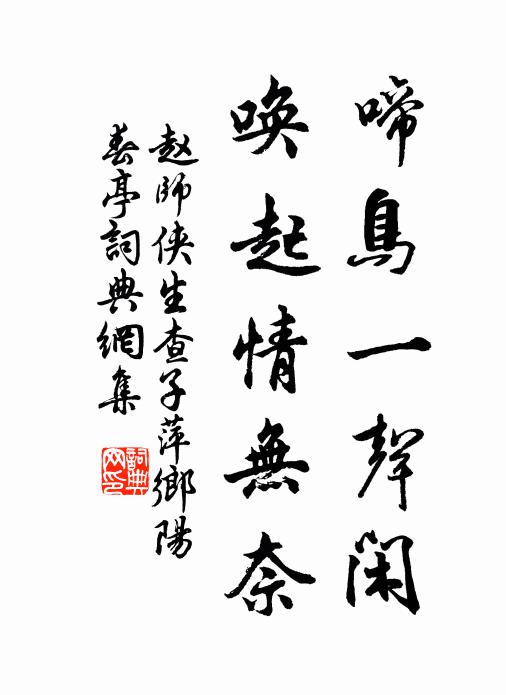 啼鳥一聲閑
喚起情無奈
赵師侠生查子萍鄉陽
春亭詞典網集
詞典网印